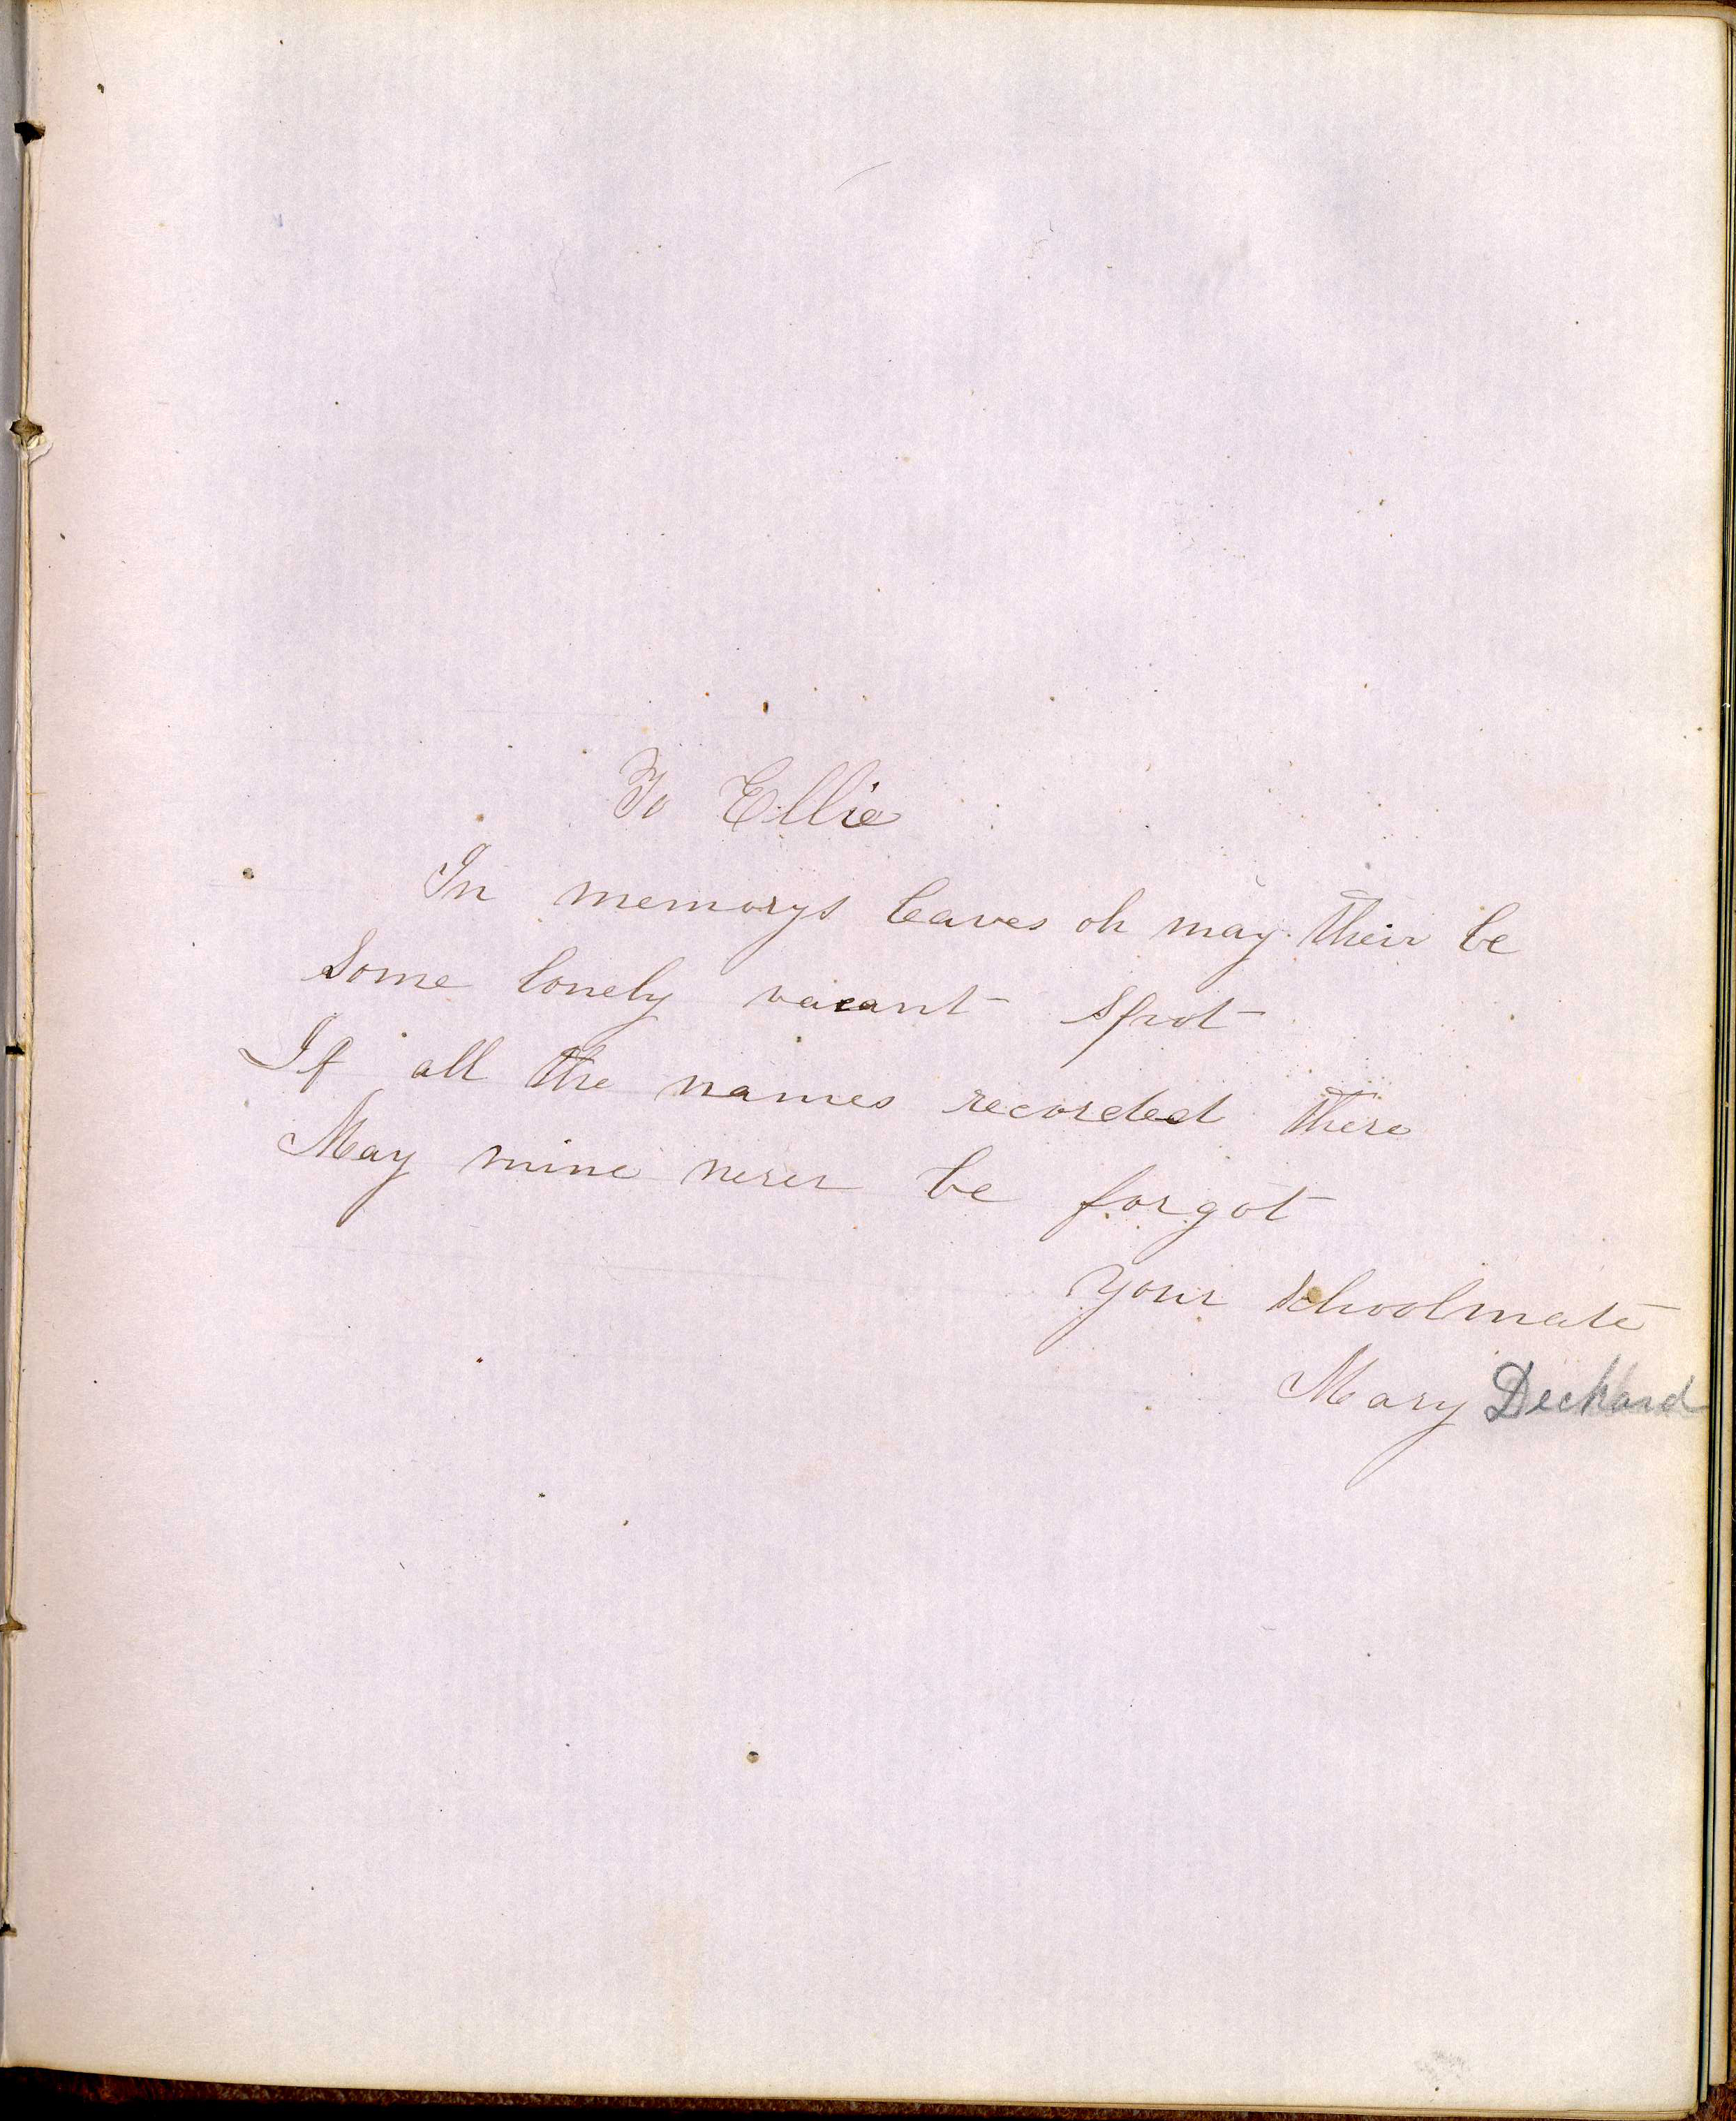 To Ellie
In memorys leaves oh may their be
Some lonely vacant spot
If all the names recorded there
May mine never be forgot
your schoolmate
Mary Deckard